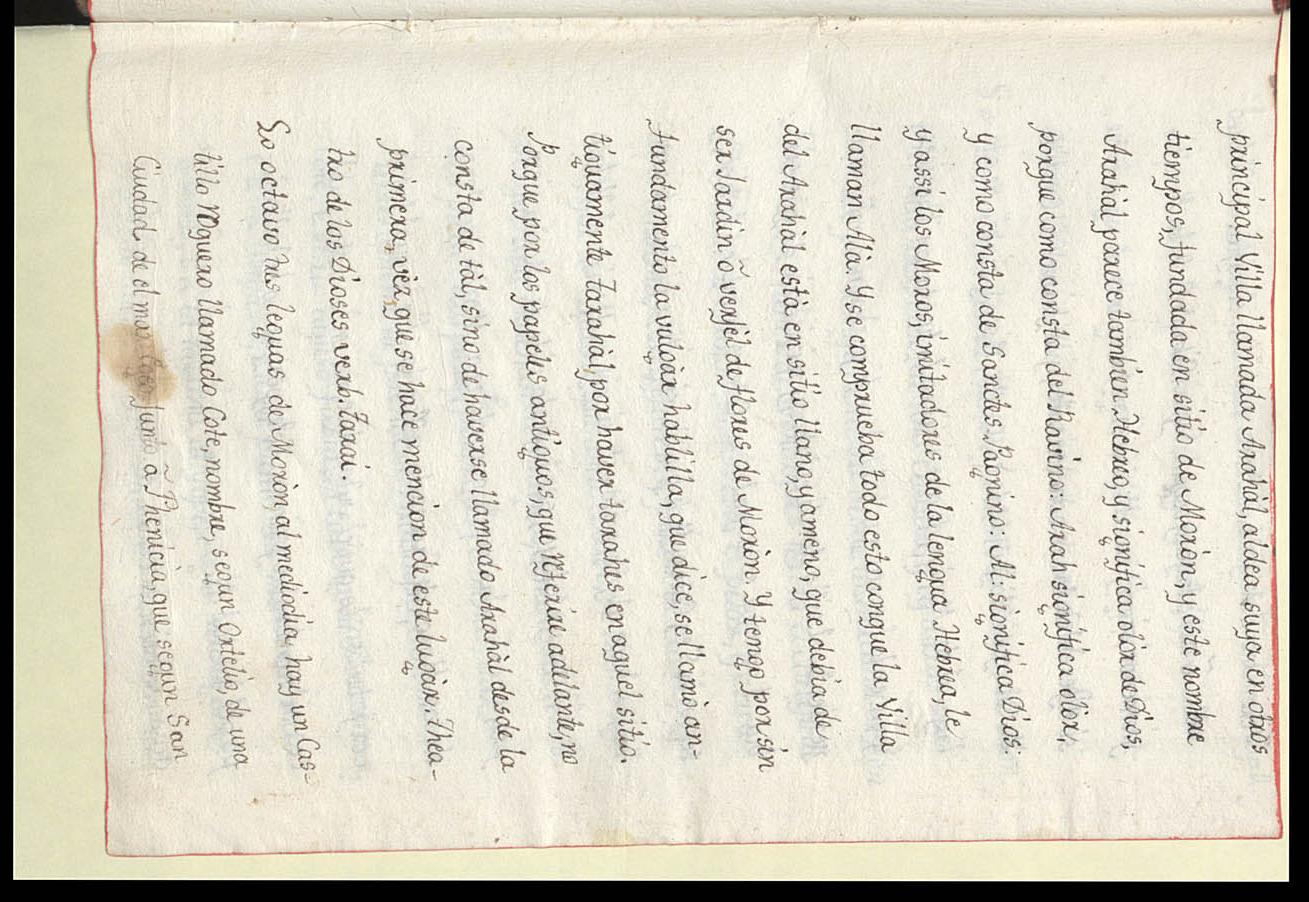 principal Villa llamada Arahàl, aldea suya en otros
tiempos, fundada en sitio de Moròn, y este nombre
Arahàl parece tambien Hebreo, y significa olor de Dios,
porque como consta del Pavino: Arah significa olor,
y como consta de Sanctes Pagnino: Al: significa Dios:
y assi los Moros, imitadores de la lengua Hebrea, le
llaman Alà. Y se comprueba todo esto con que la Villa
del Arahàl està en sitio llano, y ameno, que debia de
ser Jardin ò verjèl de flores de Moròn. Y tengo por sin
fundamento la vulgàr hablilla, que dice, se llamò an-
tiguamente Taxahàl, por haver taxahes en aquel sitio.
Porque por los papeles antiguos, que referirè adelante, no
consta de tàl, sino de haverse llamado Arahàl desde la
primera vèz, que se hace mencion de este lugàr, Thea-
tro de los Dioses verb. Taxai.
Lo octavo tres leguas de Moròn, al mediodia, hay un Cas-
tillo Roquero llamado Cote, nombre, segun Ortelio, de una
Ciudad de el mas junto à Phenicia, que segun San